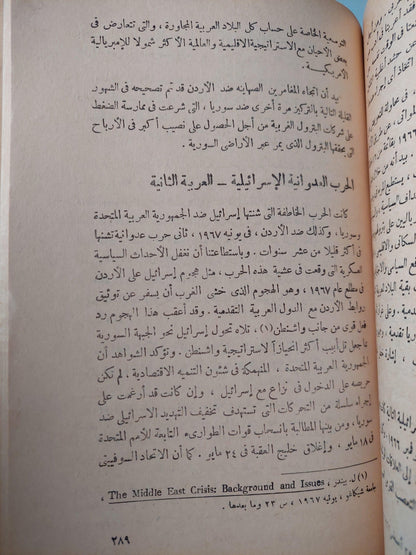 التوسعية الخاصة على حساب كل البلاد العربية المجاورة ، والتى تتعارض فى
بعض الأحيان مع الاستراتيجية الاقليمية والعالمية الأكثر شمولا للإمبريالية
الأمريكيـــة .
بيد أن اتجاه المغامرين الصهاينه ضد الأردن قد تم تصحيحه فى الشهور
القليلة التالية بالتركيز مرة أخرى ضد سوريا ، التى شرعت فى ممارسة الضغط
على شركات البترول من أجل الحصول على نصيب أكبر فى الأرباح
التى يحققها البترول الذى يمر عبر الأراضى السورية .
الحرب العدوانية الإسرائيلية ــ العربية الثانية
كانت الحرب الخاطفة التى شنتها إسرائيل ضد الجمهورية العربية المتحدة
وسوريا ، وكذلك ضد الأردن ، فى يونيه ١٩٦٧ ، ثانى حرب عدوانية تشنها
فى أكثر قليلا من عشر سنوات . وباستطاعتنا أن نغفل الأحداث السياسية
العسكرية التى وقعت فى عشية هذه الحرب ، مثل هجوم إسرائيل على الأردن
فى مطلع عام ١٩٦٧ ، وهو الهجوم الذى خشى الغرب أن يسفر عن توثيق
روابط الأردن مع الدول العربية التقدمية . وقد أعقب هذا الهجوم رد
فعل قوى من جانب واشنطن (١) ، تلاه تحول إسرائيل نحو الجبهة السورية
عاجعل تل أبيب أكثر انحيازاً لاستراتيجية واشنطن . وتؤكد الشواهد أن
الجمهورية العربية المتحدة ، المنهمكة فى شئون التنمية الاقتصادية ، لم تكن
حريصه على الدخول فى نزاع مع إسرائيل ، وإن كانت قد أرغمت على
إجراء سلسلة من التحركات التى تستهدف تخفيف التهديد الإسرائيلى ضد
سوريا ، ومن بينها المطالبة بانسحاب قوات الطوارىء التابعة للأمم المتحدة
فى ١٨ مايو ، وإغلاق خليج العقبة فى ٢٤ مايو . كما أن الاتحاد السوفييتى
(١) ل. بيندر ، The Middle East Crisis: Background and Issues ,
جامعة شيكاغو ، يونيه ١٩٦٧ ، ص ٢٣ وما بعدها .
٢٨٩